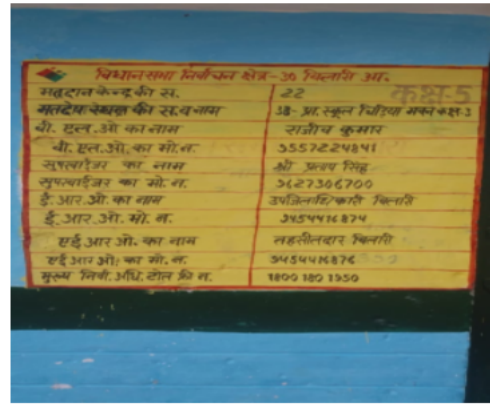 विधानसभा निर्वाचन क्षेत्र-30 बिलारी आ.
मतदान केन्द्र की स. 22
कक्ष-5
मतदेय स्थल की स. व नाम 38- प्रा. स्कूल चिड़िया भवन कक्ष-3
बी. एल. ओ का नाम राजीव कुमार
बी. एल. ओ का मो. न. 9557224841
सुपरवाईजर का नाम श्री प्रताप सिंह
सुपरवाईजर का मो. न. 9627306700
ई. आर. ओ. का नाम उपजिलाधिकारी बिलारी
ई. आर. ओ. मो. न. 9454416874
एई आर ओ. का नाम तहसीलदार बिलारी
एई आर ओ. का मो. न. 9454416876
मुख्य निर्वा. अधि. टोल फ्री न. 1800 180 1950